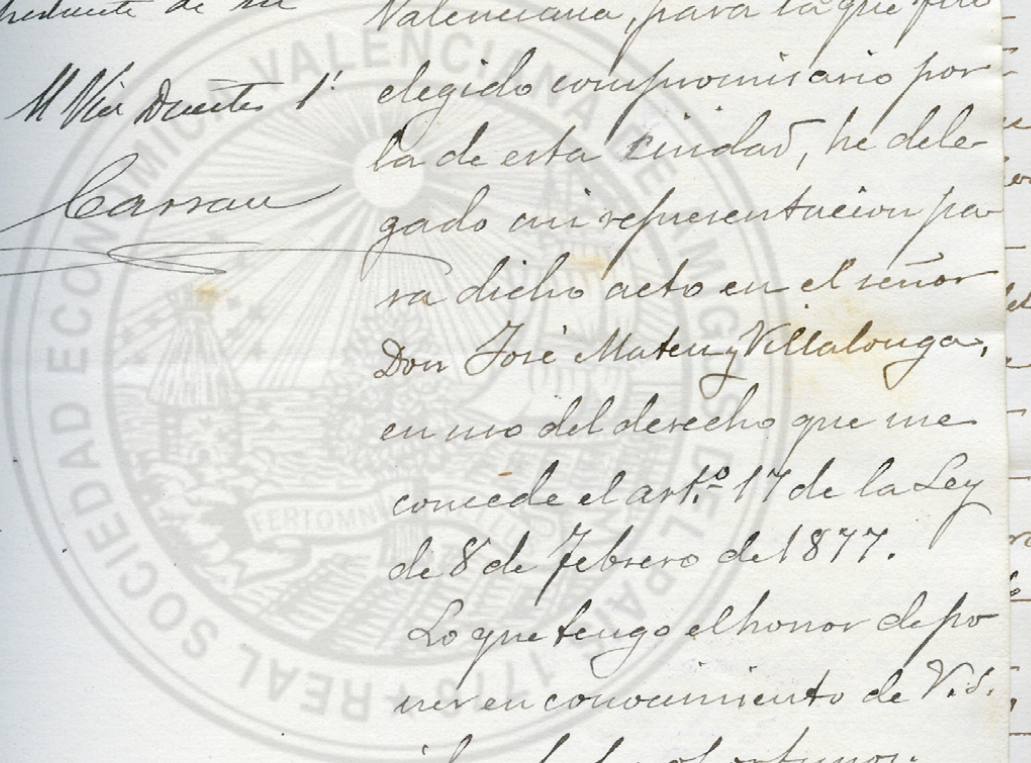 Valenciana, para la que fue
elegido compromisario por
la de esta ciudad, he dele-
gado mi representacion pa-
ra dicho acto en el señor
Don José Mateu y Villalonga,
en uso del derecho que me
concede el art.º 17 de la Ley
de 8 de Febrero de 1877.
Lo que tengo el honor de po
ner en conocimiento de V.S.
de su
El Vice
Carrau
REAL SOCIEDAD ECONOMICA VALENCIANA DE AMIGOS DEL PAIS
1776